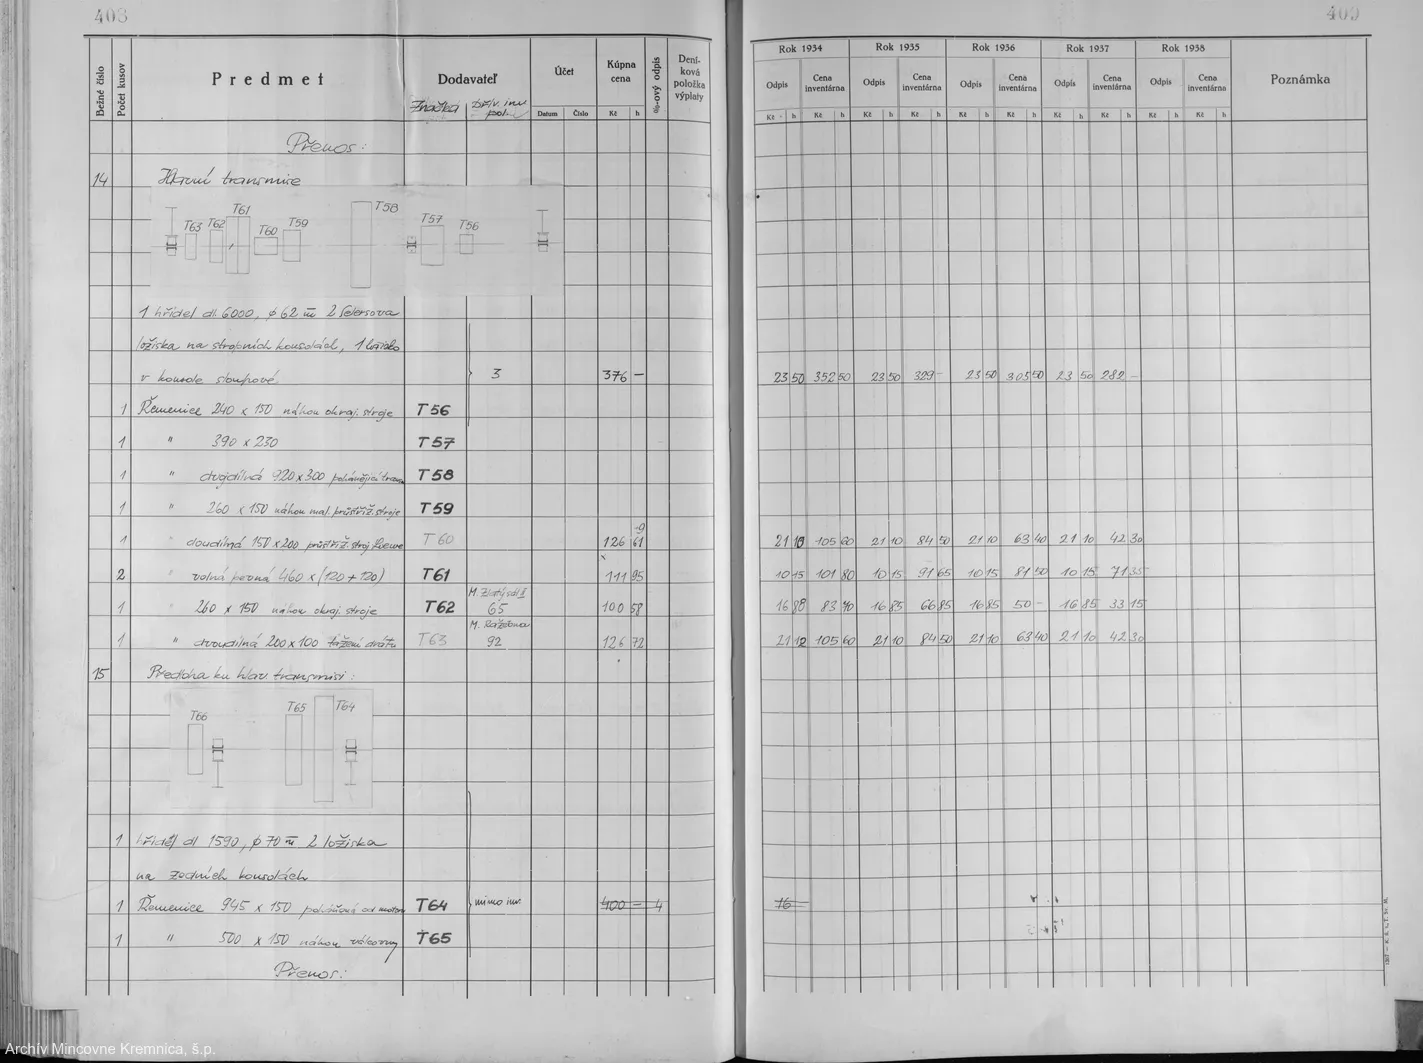 408
409
Bežné číslo
Počet kusov
Predmet
Dodavateľ
Značka
Dřív. inv. pol.
Účet
Datum
Číslo
Kúpna cena
Kč
h
%-ový odpis
Deníková položka výplaty
Rok 1934
Rok 1935
Rok 1936
Rok 1937
Rok 1938
Odpis Cena inventárna Odpis Cena inventárna Odpis Cena inventárna Odpis Cena inventárna Odpis Cena inventárna
Kč h Kč h Kč h Kč h Kč h Kč h Kč h Kč h Kč h Kč h
Poznámka
Přenos:
14 Hlavní transmise
T63 T62 T61 T60 T59 T58 T57 T56
1 hřídel dl. 6000, φ 62 m 2 Selersova
ložiska na stropních konsolách, 1 ložisko
v konsole sloupové 3 376 — 23 50 352 50 23 50 329 - 23 50 305 50 23 50 282 -
1 Řemenice 240 x 150 náhon okraj. stroje T56
1 " 390 x 230 T57
1 " dvojdílná 920 x 300 pohánějící trans. T58
1 " 260 x 150 náhon mal. průstřiž. stroje T59
1 " doudílná 150 x 200 průstřiž. stroj Loewe T60 126 61 21 10 105 60 21 10 84 50 21 10 63 40 21 10 42 30
2 " volná pevná 460 x (120 + 120) T61 111 95 10 15 101 80 10 15 91 65 10 15 81 50 10 15 71 35
M. Zlatý sál II
1 " 260 x 150 náhon okraj. stroje T62 65 100 58 16 88 83 70 16 85 66 85 16 85 50 - 16 85 33 15
M. Ražebna
1 " dvoudílná 200 x 100 tažení drátu T63 92 126 72 21 12 105 60 21 10 84 50 21 10 63 40 21 10 42 30
15 Předloha ku hlav. transmisi:
T66 T65 T64
1 hřídel dl 1590, φ 70 m 2 ložiska
na zedních konsolách
1 Řemenice 945 x 150 poháněná od motoru T64 mimo inv. 400 — 4 16 —
1 " 500 x 150 náhon válcovny T65
Přenos:
Archív Mincovne Kremnica, š.p.